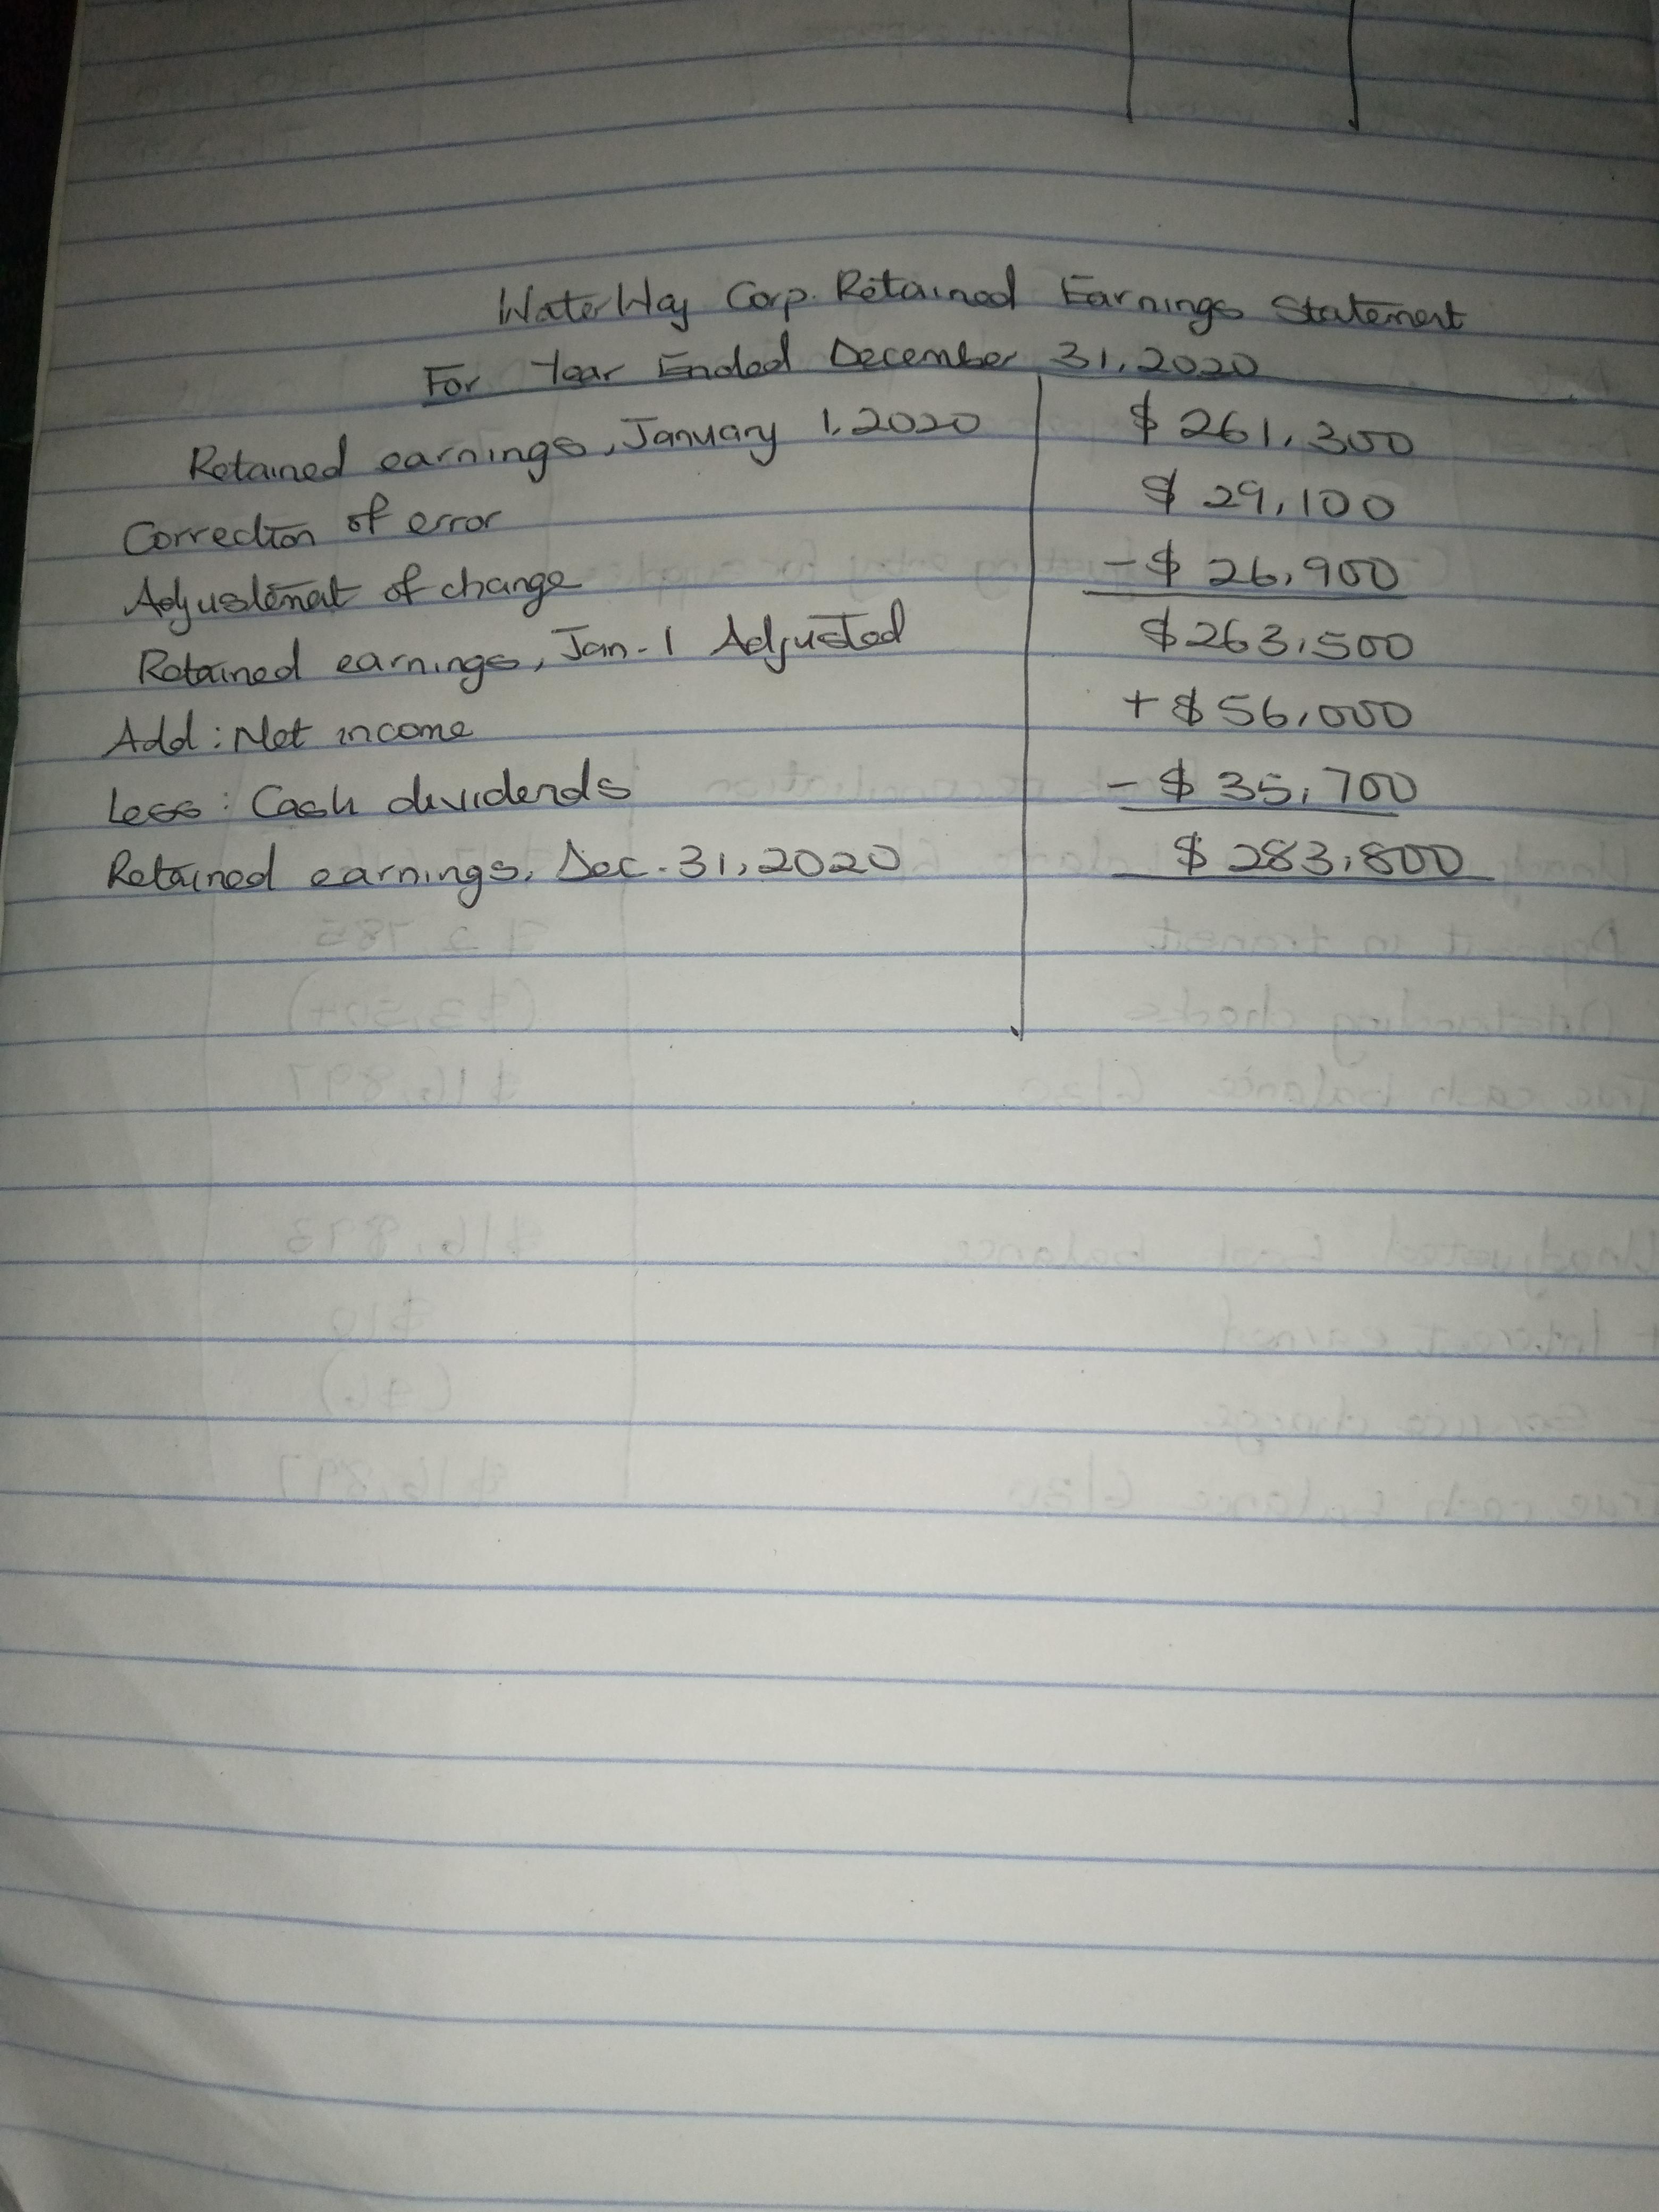 WaterWay Corp. Retained Earnings Statement
For Year Ended December 31, 2020
Retained earnings, January 1, 2020 $ 261,300
Correction of error $ 29,100
Adjustment of change - $ 26,900
Retained earnings, Jan. 1 Adjusted $263,500
Add: Net income + $56,000
Less: Cash dividends - $ 35,700
Retained earnings, Dec. 31, 2020 $ 283,800